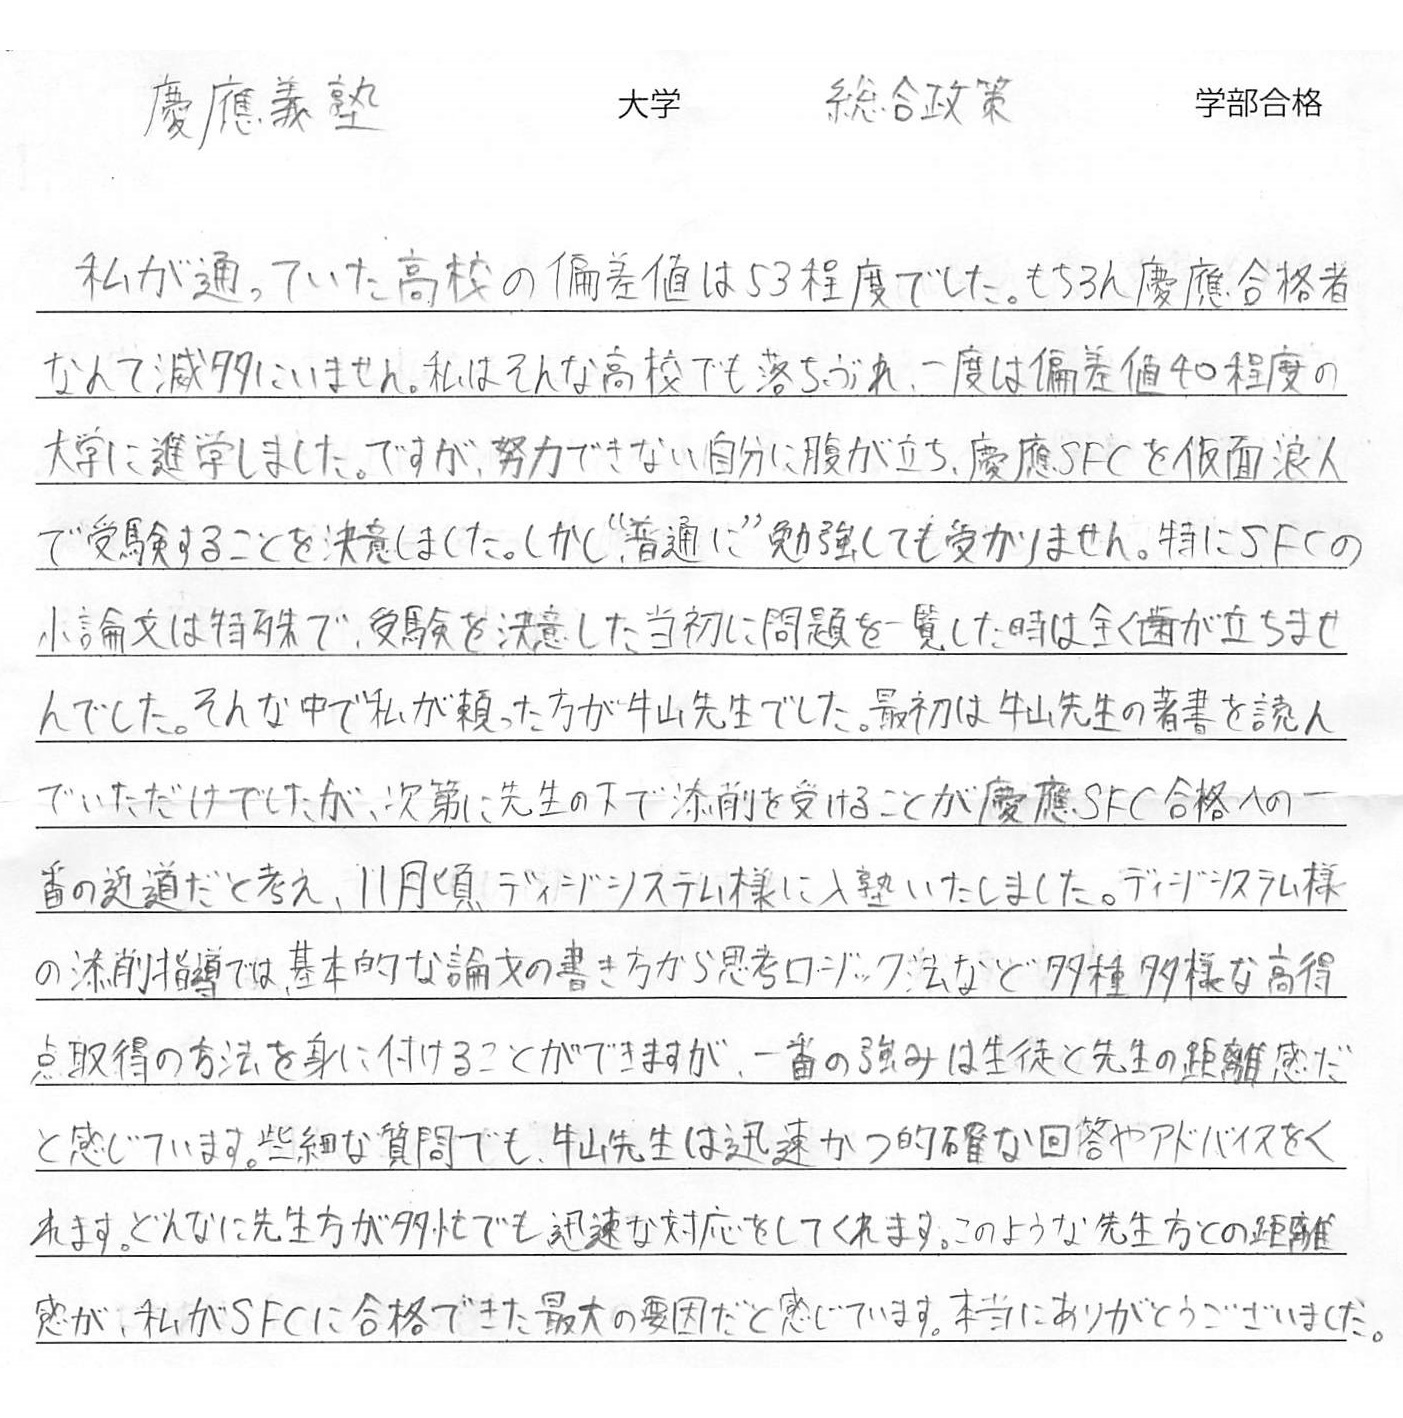 慶應義塾 大学 総合政策 学部合格
私が通っていた高校の偏差値は53程度でした。もちろん慶應合格者
なんて滅多にいません。私はそんな高校でも落ちぶれ、一度は偏差値40程度の
大学に進学しました。ですが、努力できない自分に腹が立ち、慶應SFCを仮面浪人
で受験することを決意しました。しかし、“普通に”勉強しても受かりません。特にSFCの
小論文は特殊で、受験を決意した当初に問題を一覧した時は全く歯が立ちませ
んでした。そんな中で私が頼った方が牛山先生でした。最初は牛山先生の著書を読ん
でいただけでしたが、次第に先生の下で添削を受けることが慶應SFC合格への一
番の近道だと考え、11月頃ディジシステム様に入塾いたしました。ディジシステム様
の添削指導では、基本的な論文の書き方から思考ロジック法など多種多様な高得
点取得の方法を身に付けることができますが、一番の強みは生徒と先生の距離感だ
と感じています。些細な質問でも、牛山先生は迅速かつ的確な回答やアドバイスをく
れます。どんなに先生方が多忙でも迅速な対応をしてくれます。このような先生方との距離
感が、私がSFCに合格できた最大の要因だと感じています。本当にありがとうございました。